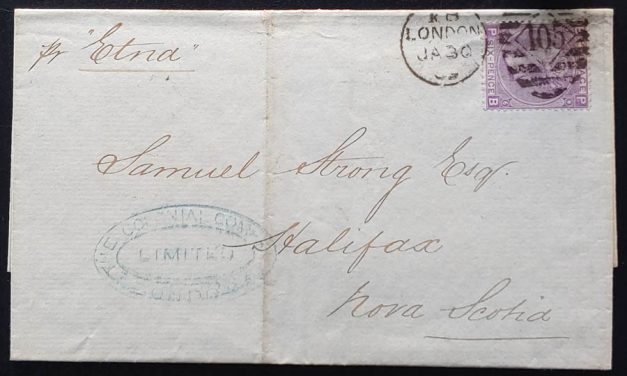 pr "Etna"
LONDON
JA 30
105
SIX-PENCE
Samuel Strong Esqr.
THE COLONIAL COMP
LIMITED
LONDON
Halifax
Nova Scotia